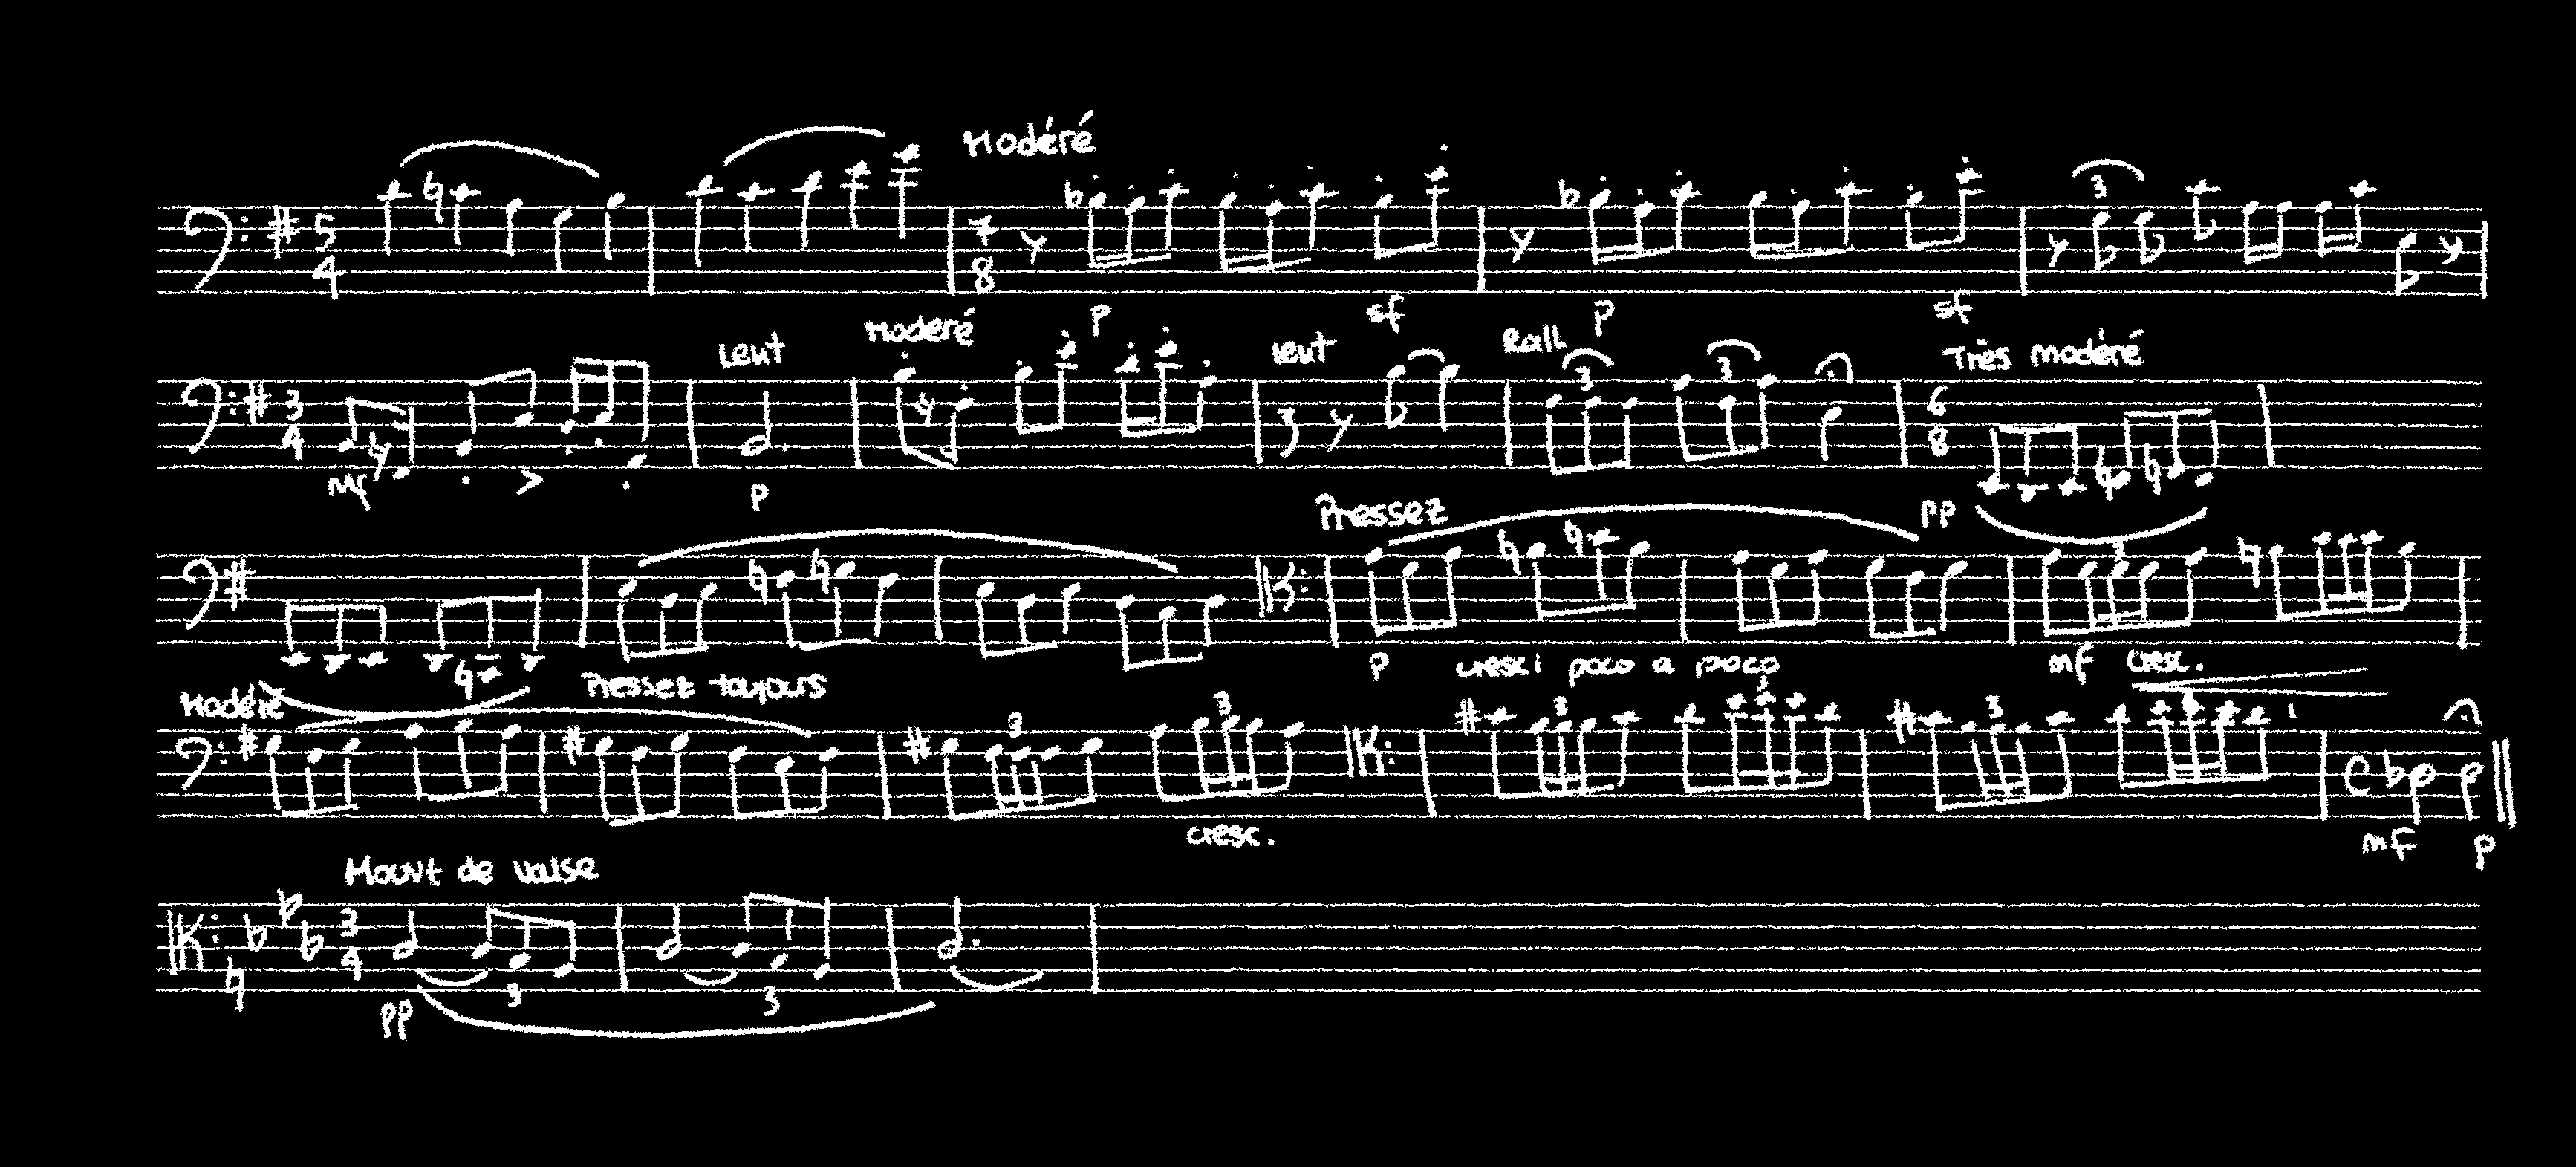 Modéré
5 4
7 8
3
p sf p sf
Lent Modéré Lent Rall Très modéré
3 4
3 3
6 8
mf p pp
Pressez
3
p cresci poco a poco mf cresc.
Modéré Pressez toujours
3 3 3 3 3
cresc. mf p
Mouvt de valse
3 4
3 3
pp